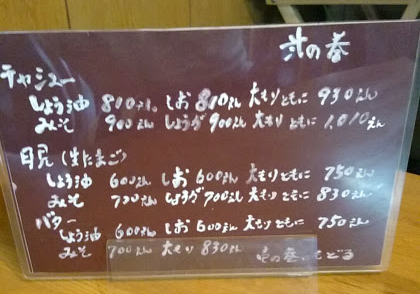 弐の巻
チャシュー
しょう油 810えん しお 810えん 大もりともに 930えん
みそ 900えん しょうが 900えん 大もりともに 1,010えん
月見(生たまご)
しょう油 600えん しお 600えん 大もりともに 750えん
みそ 700えん しょうが 700えん 大もりともに 830えん
バター
しょう油 600えん しお 600えん 大もりともに 750えん
みそ 700えん 大もり 830えん
壱の巻へもどる